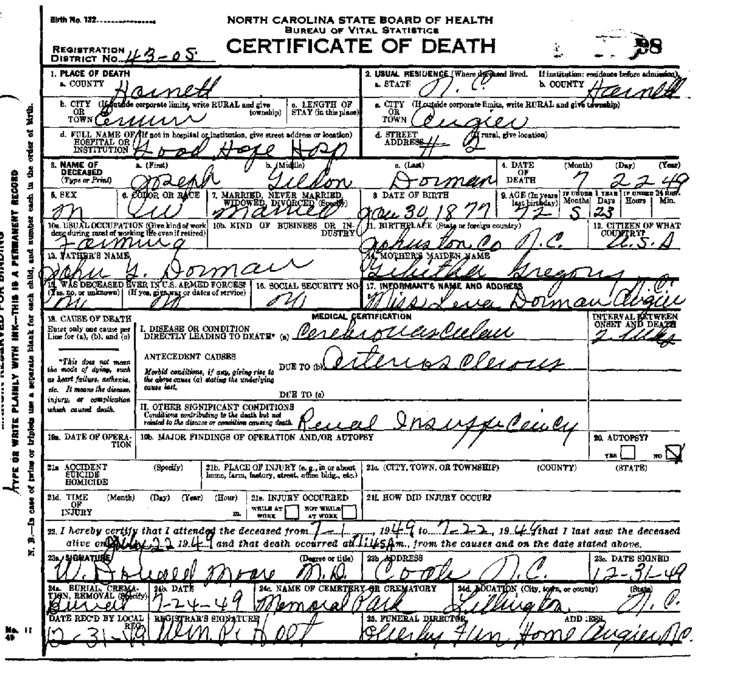 Birth No. 132
NORTH CAROLINA STATE BOARD OF HEALTH
BUREAU OF VITAL STATISTICS
CERTIFICATE OF DEATH
REGISTRATION DISTRICT No. 43-05
98
1. PLACE OF DEATH
a. COUNTY Harnett
2. USUAL RESIDENCE (Where deceased lived. If institution: residence before admission)
a. STATE N. C. b. COUNTY Harnett
b. CITY OR TOWN (If outside corporate limits, write RURAL and give township) Erwin
c. LENGTH OF STAY (in this place)
c. CITY OR TOWN (If outside corporate limits, write RURAL and give township) Angier
d. FULL NAME OF HOSPITAL OR INSTITUTION (If not in hospital or institution, give street address or location) Good Hope Hosp
d. STREET ADDRESS (If rural, give location) # 2
3. NAME OF DECEASED (Type or Print)
a. (First) Joseph b. (Middle) c. (Last) Dorman
4. DATE OF DEATH (Month) (Day) (Year) 7 22 49
5. SEX M
6. COLOR OR RACE W
7. MARRIED, NEVER MARRIED, WIDOWED, DIVORCED (Specify) Married
8 DATE OF BIRTH Jan 30, 1877
9. AGE (In years last birthday) 72 IF UNDER 1 YEAR Months 5 Days 23 IF UNDER 24 HRS. Hours Min.
10a. USUAL OCCUPATION (Give kind of work done during most of working life even if retired) Farming
10b. KIND OF BUSINESS OR INDUSTRY
11. BIRTHPLACE (State or foreign country) Johnston Co N.C.
12. CITIZEN OF WHAT COUNTRY? U.S.A
13. FATHER'S NAME John G. Dorman
14. MOTHER'S MAIDEN NAME Gregory
15. WAS DECEASED EVER IN U.S. ARMED FORCES? (Yes, no, or unknown) (If yes, give war or dates of service)
16. SOCIAL SECURITY NO
17. INFORMANT'S NAME AND ADDRESS Miss Leva Dorman Angier N.C.
18. CAUSE OF DEATH
Enter only one cause per line for (a), (b), and (c)
*This does not mean the mode of dying, such as heart failure, asthenia, etc. It means the disease, injury, or complication which caused death.
MEDICAL CERTIFICATION
INTERVAL BETWEEN ONSET AND DEATH
I. DISEASE OR CONDITION DIRECTLY LEADING TO DEATH* (a) Cerebrovascular
ANTECEDENT CAUSES
Morbid conditions, if any, giving rise to the above cause (a) stating the underlying cause last.
DUE TO (b) Arteriosclerous
DUE TO (c)
II. OTHER SIGNIFICANT CONDITIONS
Conditions contributing to the death but not related to the disease or condition causing death.
Renal Insufficiency
19a. DATE OF OPERATION
19b. MAJOR FINDINGS OF OPERATION AND/OR AUTOPSY
20. AUTOPSY?
YES NO
21a ACCIDENT SUICIDE HOMICIDE (Specify)
21b. PLACE OF INJURY (e.g., in or about home, farm, factory, street, office bldg., etc.)
21c. (CITY, TOWN, OR TOWNSHIP) (COUNTY) (STATE)
21d. TIME OF INJURY (Month) (Day) (Year) (Hour) m.
21e. INJURY OCCURRED WHILE AT WORK NOT WHILE AT WORK
21f. HOW DID INJURY OCCUR?
22. I hereby certify that I attended the deceased from 7-1, 1949 to 7-22, 1949 that I last saw the deceased
alive on July 22 1949 and that death occurred at m., from the causes and on the date stated above.
23a. SIGNATURE (Degree or title) Moore M.D.
23b ADDRESS Coats N.C.
23c. DATE SIGNED 12-31-49
24a. BURIAL, CREMATION, REMOVAL (Specify) Burial
24b. DATE 7-24-49
24c. NAME OF CEMETERY OR CREMATORY Memorial Park
24d. LOCATION (City, town, or county) (State) Lillington N.C.
DATE REC'D BY LOCAL REG. 12-31-49
REGISTRAR'S SIGNATURE
25. FUNERAL DIRECTOR ADDRESS Fun Home Angier N.C.
TYPE OR WRITE PLAINLY WITH INK—THIS IS A PERMANENT RECORD
N. B.—In case of twins or triplets use a separate blank for each child, and number each in the order of birth.